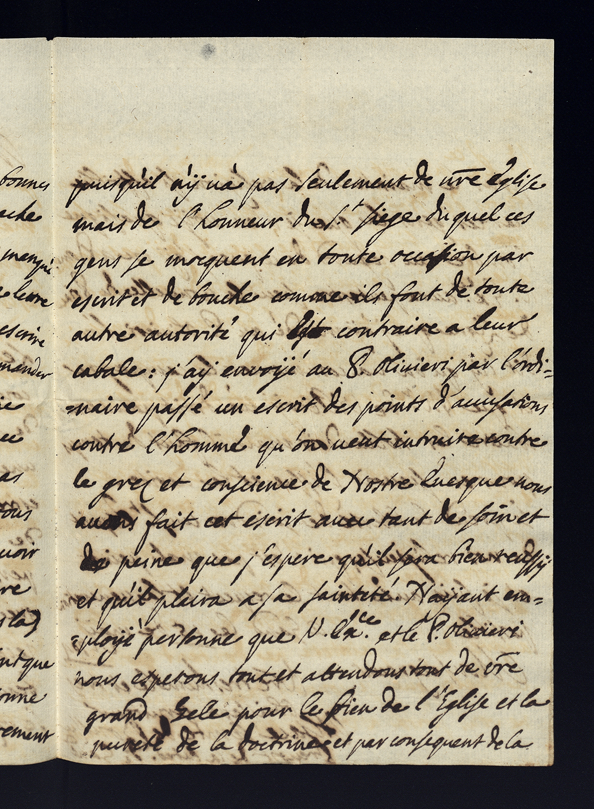 puisquil n'ÿ va pas seulement de vr̃e église
mais de l'honneur du S.t siege du quel ces
gens se moquent en toute occasion par
escrit et de bouche comme ils font de toute
autre autorité qui est contraire a leur
cabale: j'aÿ envoyé au P. Olivieri par l'ordi=
=naire passé un escrit des points d'accusations
contre l'hommé qu'on veut intruire contre
le grez et conscience de Nostre Evesque nous
avons fait cet escrit avec tant de soin et
de peine que j'espere qu'il sera bien reussÿ
et quil plaira a sa sainteté. N'aÿant em=
=ployé personne que V. Ex.ce et le P. Olivieri
nous esperons tout et attendons tout de vr̃e
grand Zele pour le bien de l'Eglise et la
pureté de la doctrine et par consequent de la
bonnes
escrire
mander